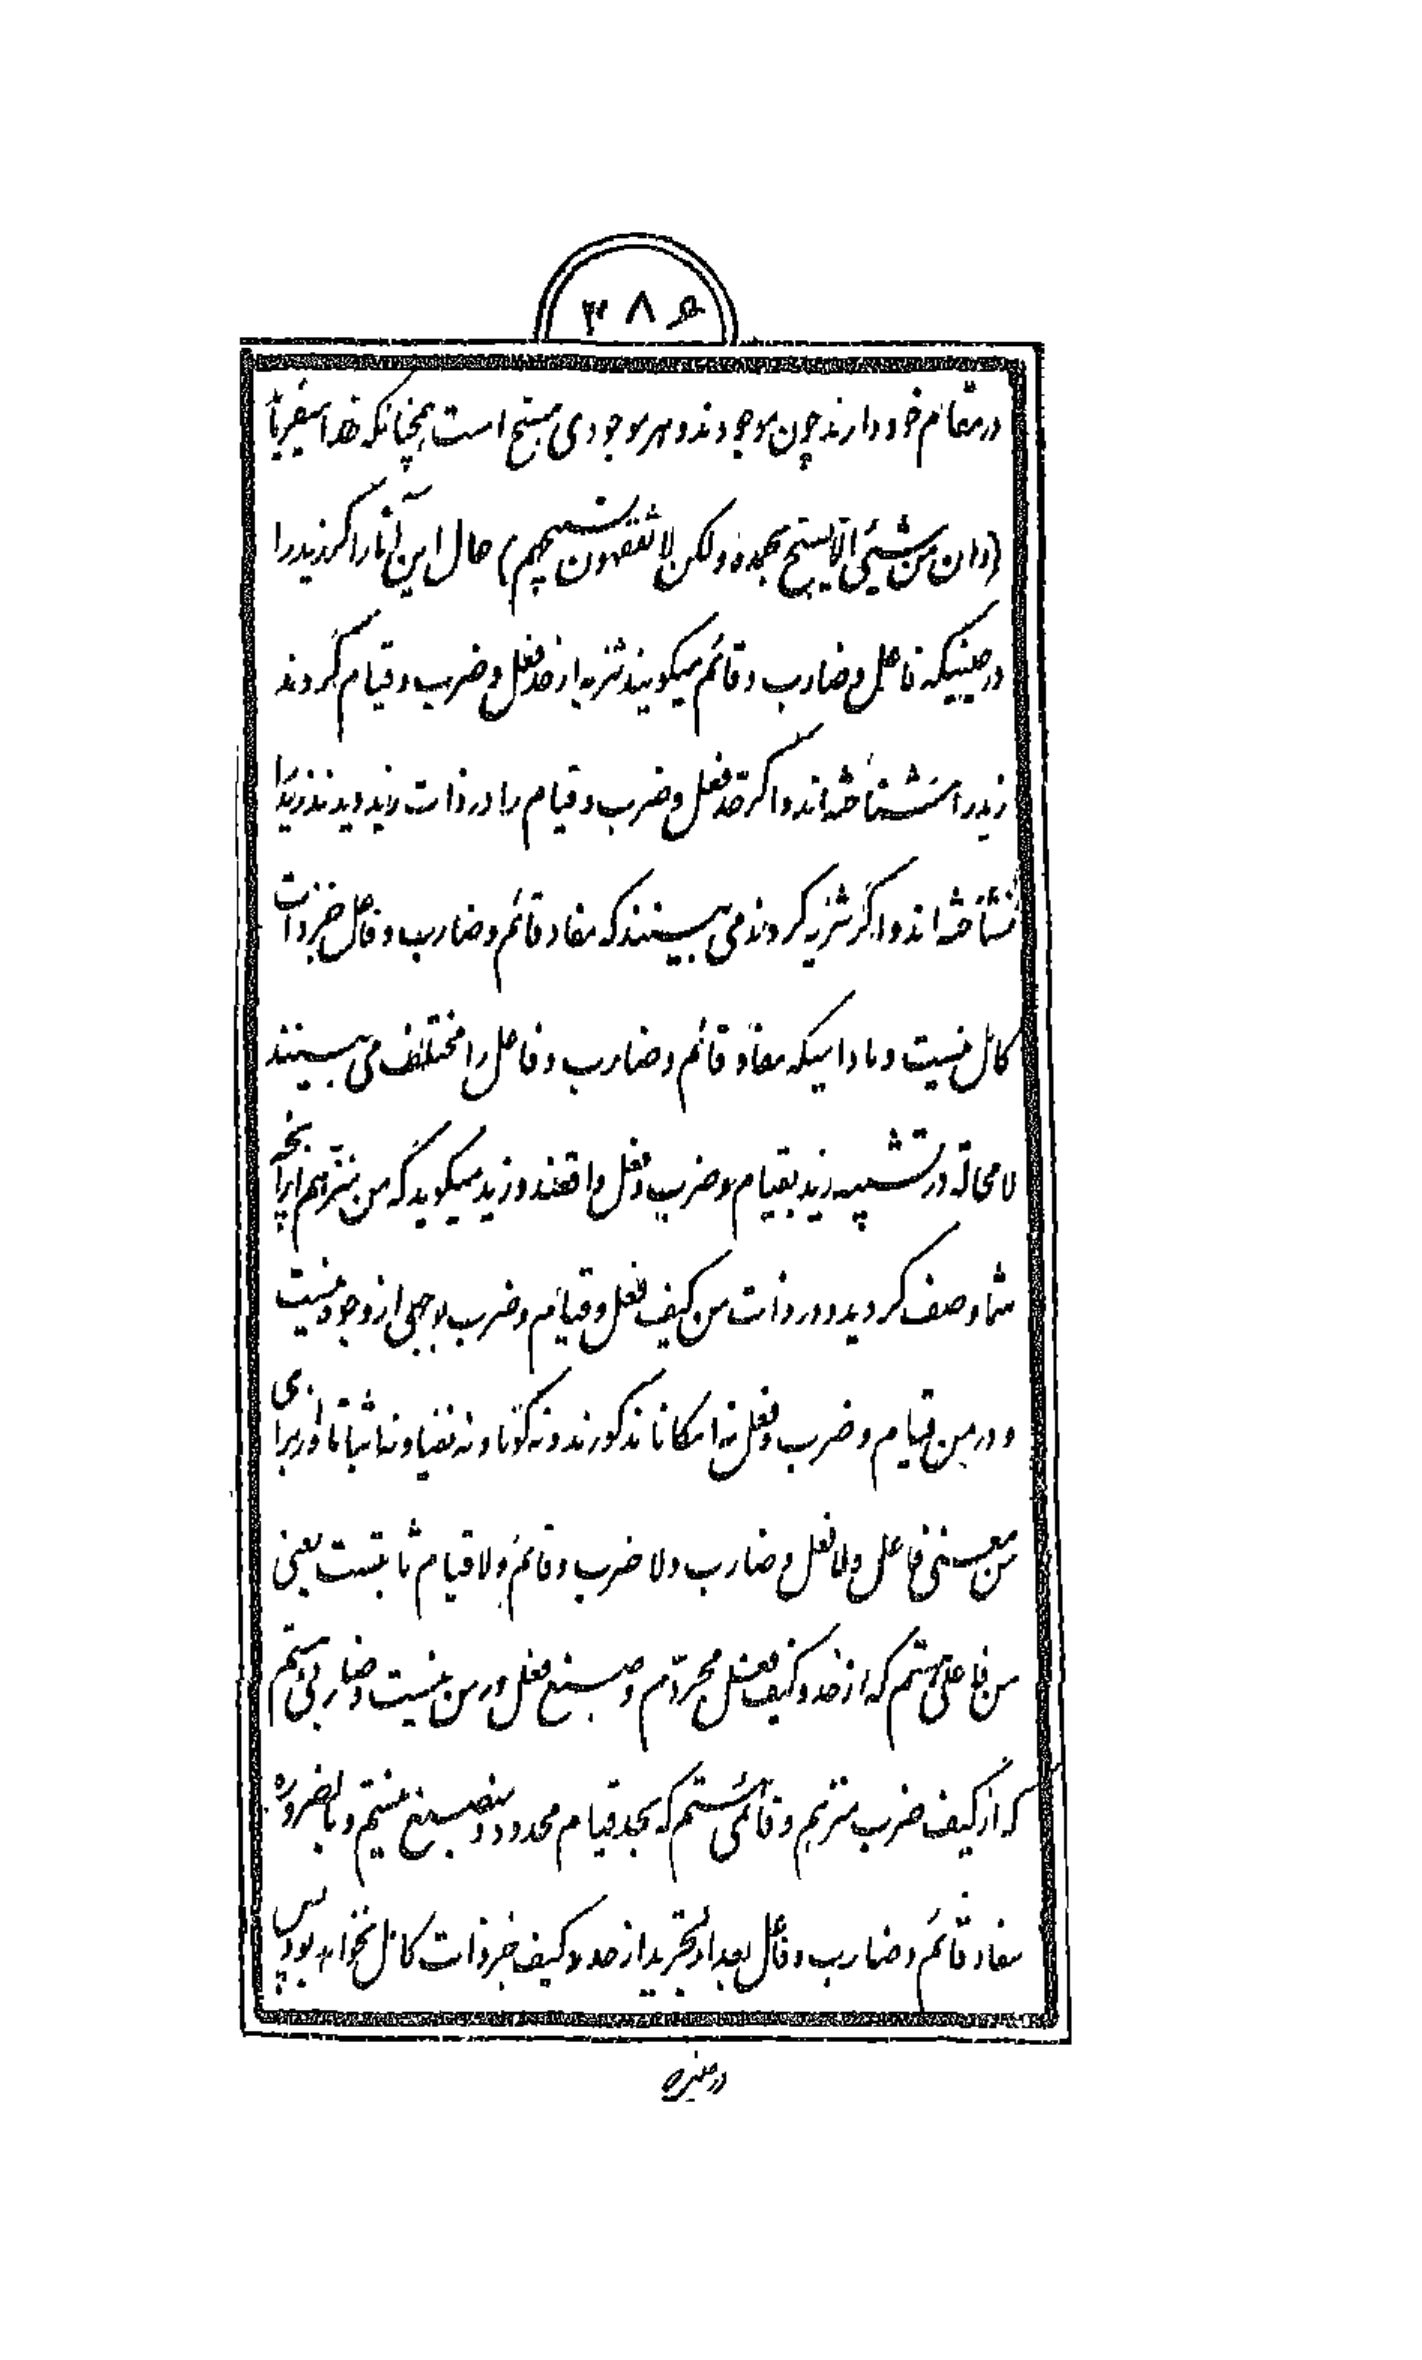 ۳۸۶
در مقام خود دارند چون موجودند و هر موجودی مسبح است همچنانکه خدا میفرماید
(وان من شیئی الا یسبح بحمده ولکن لا تفقهون تسبیحهم) حال این آثار اگر زید را
در حینیکه فاعل و ضارب و قائم میگویند تنزیه از حد فعل و ضرب و قیام کردند
زید را شناخته‌اند و اگر حد فعل و ضرب و قیام را در ذات زید دیدند زید را
نشناخته‌اند و اگر تنزیه کردند می بینند که مفاد قائم و ضارب و فاعل جز ذات
کامل نیست و مادامیکه مفاد قائم و ضارب و فاعل را مختلف می بینند
لا محاله در تشبیه زید بقیام و ضرب و فعل واقعند و زید میگوید که من منزهم از آنچه
شما وصف کردید و در ذات من کیف فعل و قیام و ضرب بوجهی از وجوه نیست
و در من قیام و ضرب و فعل نه امکانا مذکورند و نه کونا و نه نفیا و نه اثباتا و برای
من معنی فاعل ولا فعل و ضارب ولا ضرب و قائم ولا قیام ثابتست یعنی
من فاعلی هستم که از حد و کیف فعل مجردم و صبغ فعل در من نیست و ضاربی هستم
که از کیف ضرب منزهم و قائمی هستم که بحد قیام محدود و منصبغ نیستم و بالضروره
مفاد قائم و ضارب و فاعل بعد از تجرید از حد و کیف جز ذات کامل نخواهد بود پس